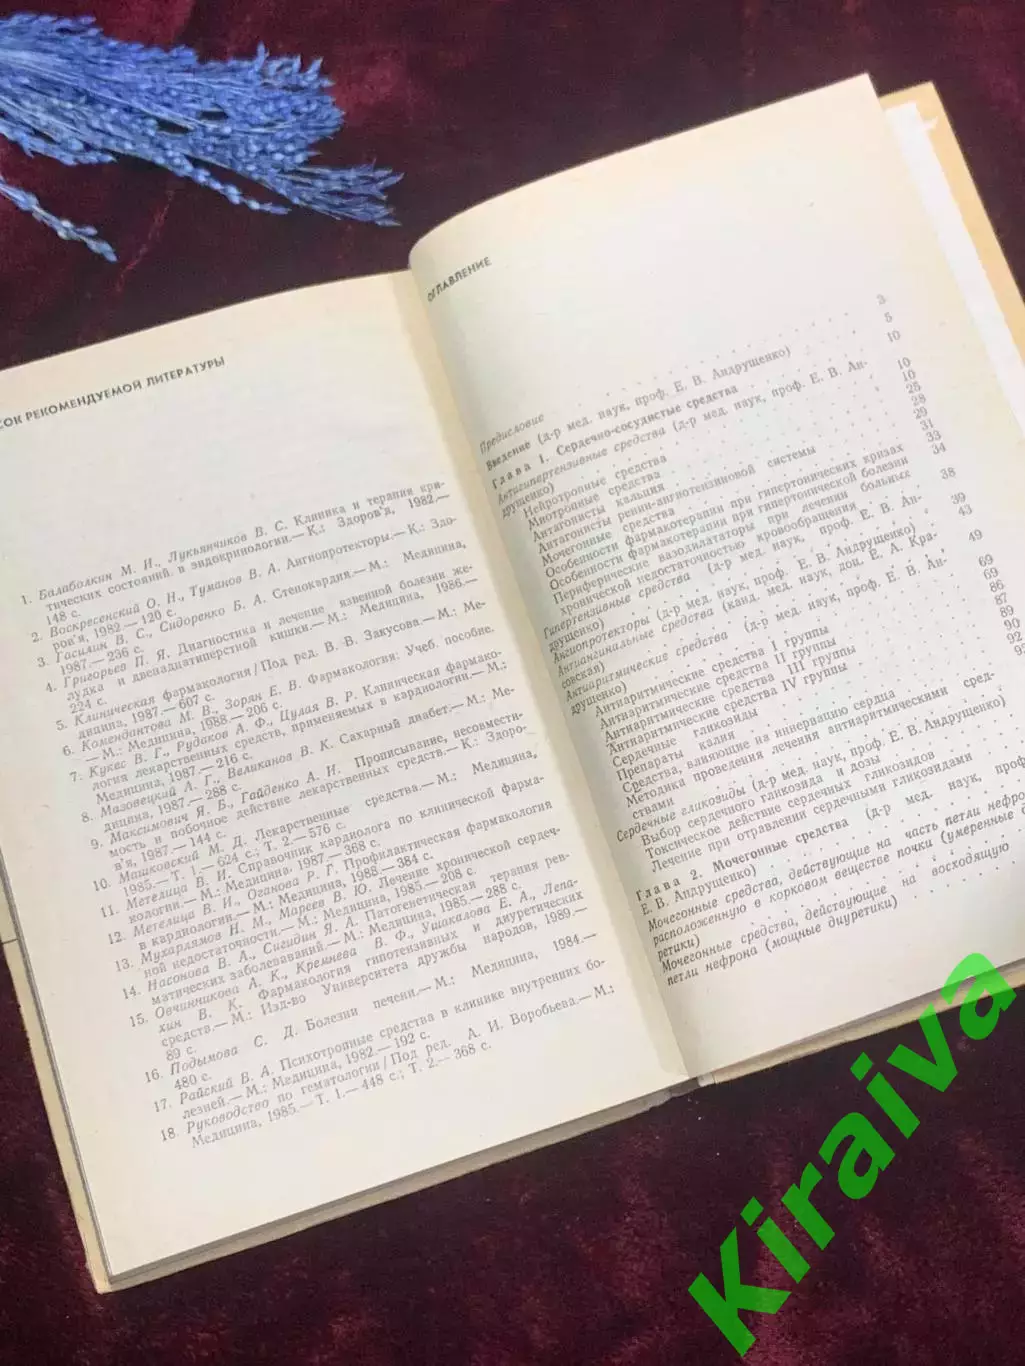 СОК РЕКОМЕНДУЕМОЙ ЛИТЕРАТУРЫ
1. Балаболкин М. И., Лукьянчиков В. С. Клиника и терапия кри-
тических состояний в эндокринологии.— К.: Здоров'я, 1982.—
148 с.
2. Воскресенский О. Н., Туманов В. А. Ангиопротекторы.— К.: Здо-
ров'я, 1982.— 120 с.
3. Гасилин В. С., Сидоренко Б. А. Стенокардия.— М.: Медицина,
1987.— 236 с.
4. Григорьев П. Я. Диагностика и лечение язвенной болезни же-
лудка и двенадцатиперстной кишки.— М.: Медицина, 1986.—
224 с.
5. Клиническая фармакология / Под ред. В. В. Закусова.— М.: Ме-
дицина, 1987.— 607 с.
6. Комендантова М. В., Зорян Е. В. Фармакология: Учеб. пособие.
— М.: Медицина, 1988.— 206 с.
7. Кукес В. Г., Рудаков А. Ф., Цулая В. Р. Клиническая фармако-
логия лекарственных средств, применяемых в кардиологии.— М.:
Медицина, 1987.— 216 с.
8. Мазовецкий А. Г., Великанов В. К. Сахарный диабет.— М.: Ме-
дицина, 1987.— 288 с.
9. Максимович Я. Б., Гайденко А. И. Прописывание, несовмести-
мость и побочное действие лекарственных средств.— К.: Здоро-
в'я, 1987.— 144 с.
10. Машковский М. Д. Лекарственные средства.— М.: Медицина,
1985.— Т. 1.— 624 с.; Т. 2.— 576 с.
11. Метелица В. И. Справочник кардиолога по клинической фарма-
кологии.— М.: Медицина, 1987.— 368 с.
12. Метелица В. И., Оганова Р. Г. Профилактическая фармакология
в кардиологии.— М.: Медицина, 1988.— 384 с.
13. Мухарлямов Н. М., Мареев В. Ю. Лечение хронической сердеч-
ной недостаточности.— М.: Медицина, 1985.— 208 с.
14. Насонова В. А., Сигидин Я. А. Патогенетическая терапия рев-
матических заболеваний.— М.: Медицина, 1985.— 288 с.
15. Овчинникова А. К., Кремнева В. Ф., Ушакалова Е. А., Лепа-
хин В. К. Фармакология гипотензивных и диуретических
средств.— М.: Изд-во Университета дружбы народов, 1989.—
89 с.
16. Подымова С. Д. Болезни печени.— М.: Медицина, 1984.—
480 с.
17. Райский В. А. Психотропные средства в клинике внутренних бо-
лезней.— М.: Медицина, 1982.— 192 с.
18. Руководство по гематологии / Под ред. А. И. Воробьева.— М.:
Медицина, 1985.— Т. 1.— 448 с.; Т. 2.— 368 с.
ОГЛАВЛЕНИЕ
Предисловие . . . 3
Введение (д-р мед. наук, проф. Е. В. Андрущенко) 5
Глава 1. Сердечно-сосудистые средства . . . 10
Антигипертензивные средства (д-р мед. наук, проф. Е. В. Ан-
друщенко) . . . 10
Нейротропные средства . . . 10
Миотропные средства . . . 25
Антагонисты кальция . . . 28
Антагонисты ренин-ангиотензиновой системы . . . 29
Мочегонные средства . . . 31
Особенности фармакотерапии при гипертонических кризах 33
Особенности фармакотерапии при гипертонической болезни 34
Периферические вазодилататоры при лечении больных
хронической недостаточностью кровообращения . . . 38
Гипертензивные средства (д-р мед. наук, проф. Е. В. Ан-
друщенко) . . . 39
Ангиопротекторы (д-р мед. наук, проф. Е. В. Андрущенко) . 43
Антиангинальные средства (канд. мед. наук, доц. Е. А. Кра-
совская) . . . 49
Антиаритмические средства (д-р мед. наук, проф. Е. В. Ан-
друщенко) . . . 69
Антиаритмические средства I группы . . . 69
Антиаритмические средства II группы . . . 86
Антиаритмические средства III группы . . . 87
Антиаритмические средства IV группы . . . 89
Сердечные гликозиды . . . 90
Препараты калия . . . 92
Средства, влияющие на иннервацию сердца
Методика проведения лечения антиаритмическими сред-
ствами
Сердечные гликозиды (д-р мед. наук, проф. Е. В. Андрущенко)
Выбор сердечного гликозида и дозы
Токсическое действие сердечных гликозидов
Лечение при отравлении сердечными гликозидами
Глава 2. Мочегонные средства (д-р мед. наук, проф.
Е. В. Андрущенко)
Мочегонные средства, действующие на часть петли нефрона,
расположенную в корковом веществе почки (умеренные
ретики)
Мочегонные средства, действующие на восходящую
петли нефрона (мощные диуретики) .
Kiraiva